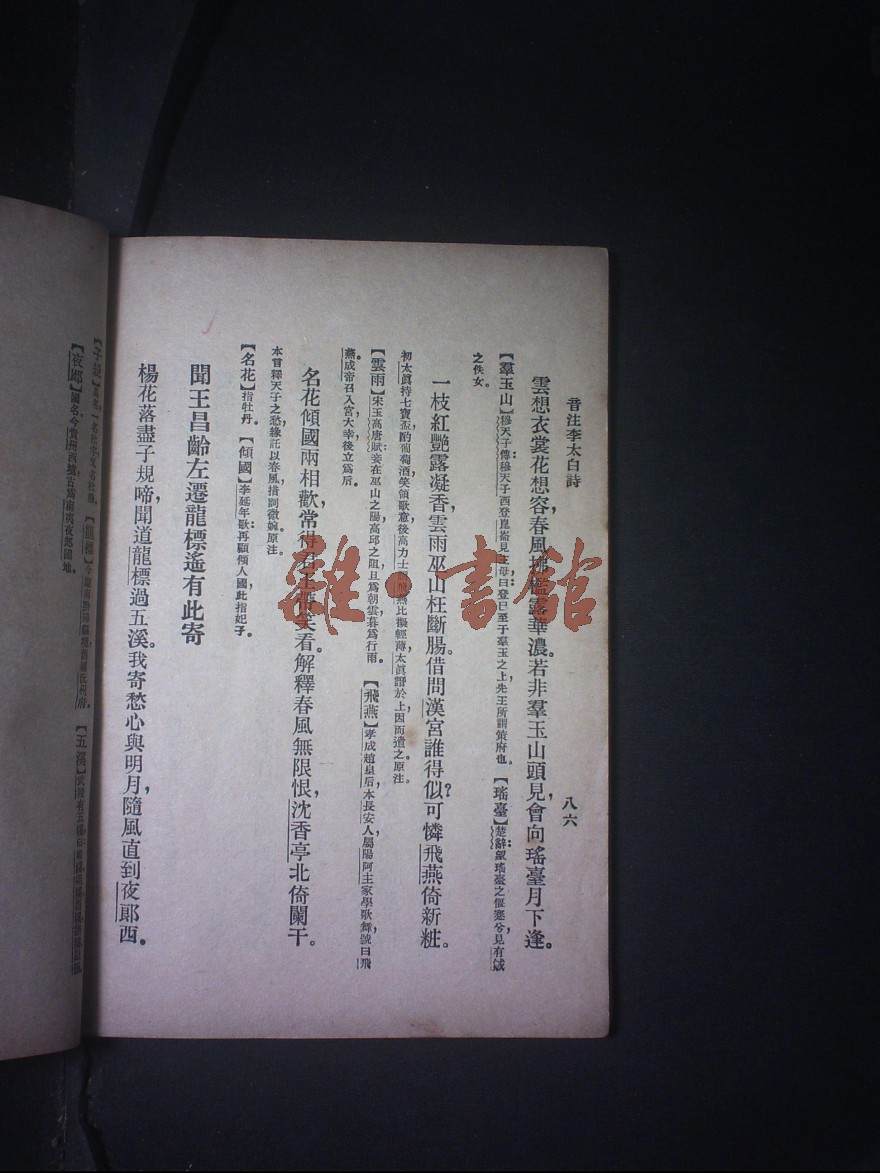 音注李太白詩
八六
雲想衣裳花想容，春風拂檻露華濃。若非羣玉山頭見，會向瑤臺月下逢。
【羣玉山】穆天子傳：穆天子西登崑崙，見王母曰：登已至于羣玉之上，先王所謂策府也。【瑤臺】楚辭：望瑤臺之偃蹇兮，見有娀
之佚女。
一枝紅艷露凝香，雲雨巫山枉斷腸。借問漢宮誰得似？可憐飛燕倚新粧。
初太眞持七寶盃酌葡萄酒笑領歌意後高力士飛燕比擬輕薄太眞譖於上因而遣之。原注。
【雲雨】宋玉高唐賦：妾在巫山之陽高邱之阻，旦爲朝雲，暮爲行雨。【飛燕】孝成趙皇后，本長安人，屬陽阿主家，學歌舞，號曰飛
燕。成帝召入宮大幸後立爲后。
名花傾國兩相歡，常得君王帶笑看。解釋春風無限恨，沈香亭北倚闌干。
本言釋天子之愁緣託以春風措詞微婉原注。
【名花】指牡丹。【傾國】李延年歌：再顧傾人國。此指妃子。
聞王昌齡左遷龍標遙有此寄
楊花落盡子規啼，聞道龍標過五溪。我寄愁心與明月，隨風直到夜郞西。
【子規】
【龍標】
【五溪】武陵有五溪
【夜郞】國名，今貴州西境，古爲南夷夜郞國地。
雜·書館